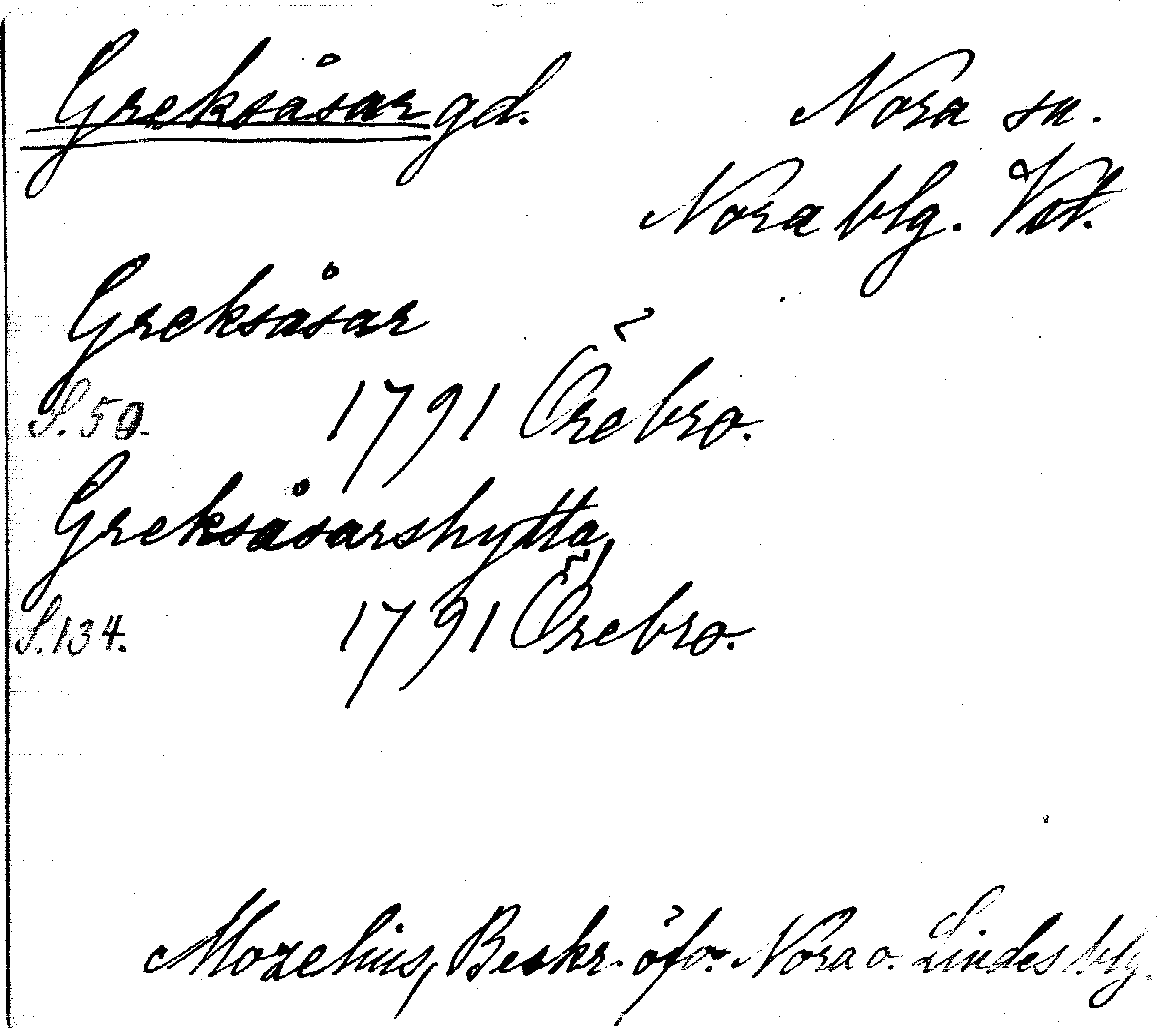 Greksåsar gd. Nora sn.
Nora blg. Vstl.
Greksåsar
S. 50. 1791 Örebro.
Greksåsarshytta,
S. 134. 1791 Örebro.
Mozelius, Beskr. öfv. Nora o. Lindes blg.